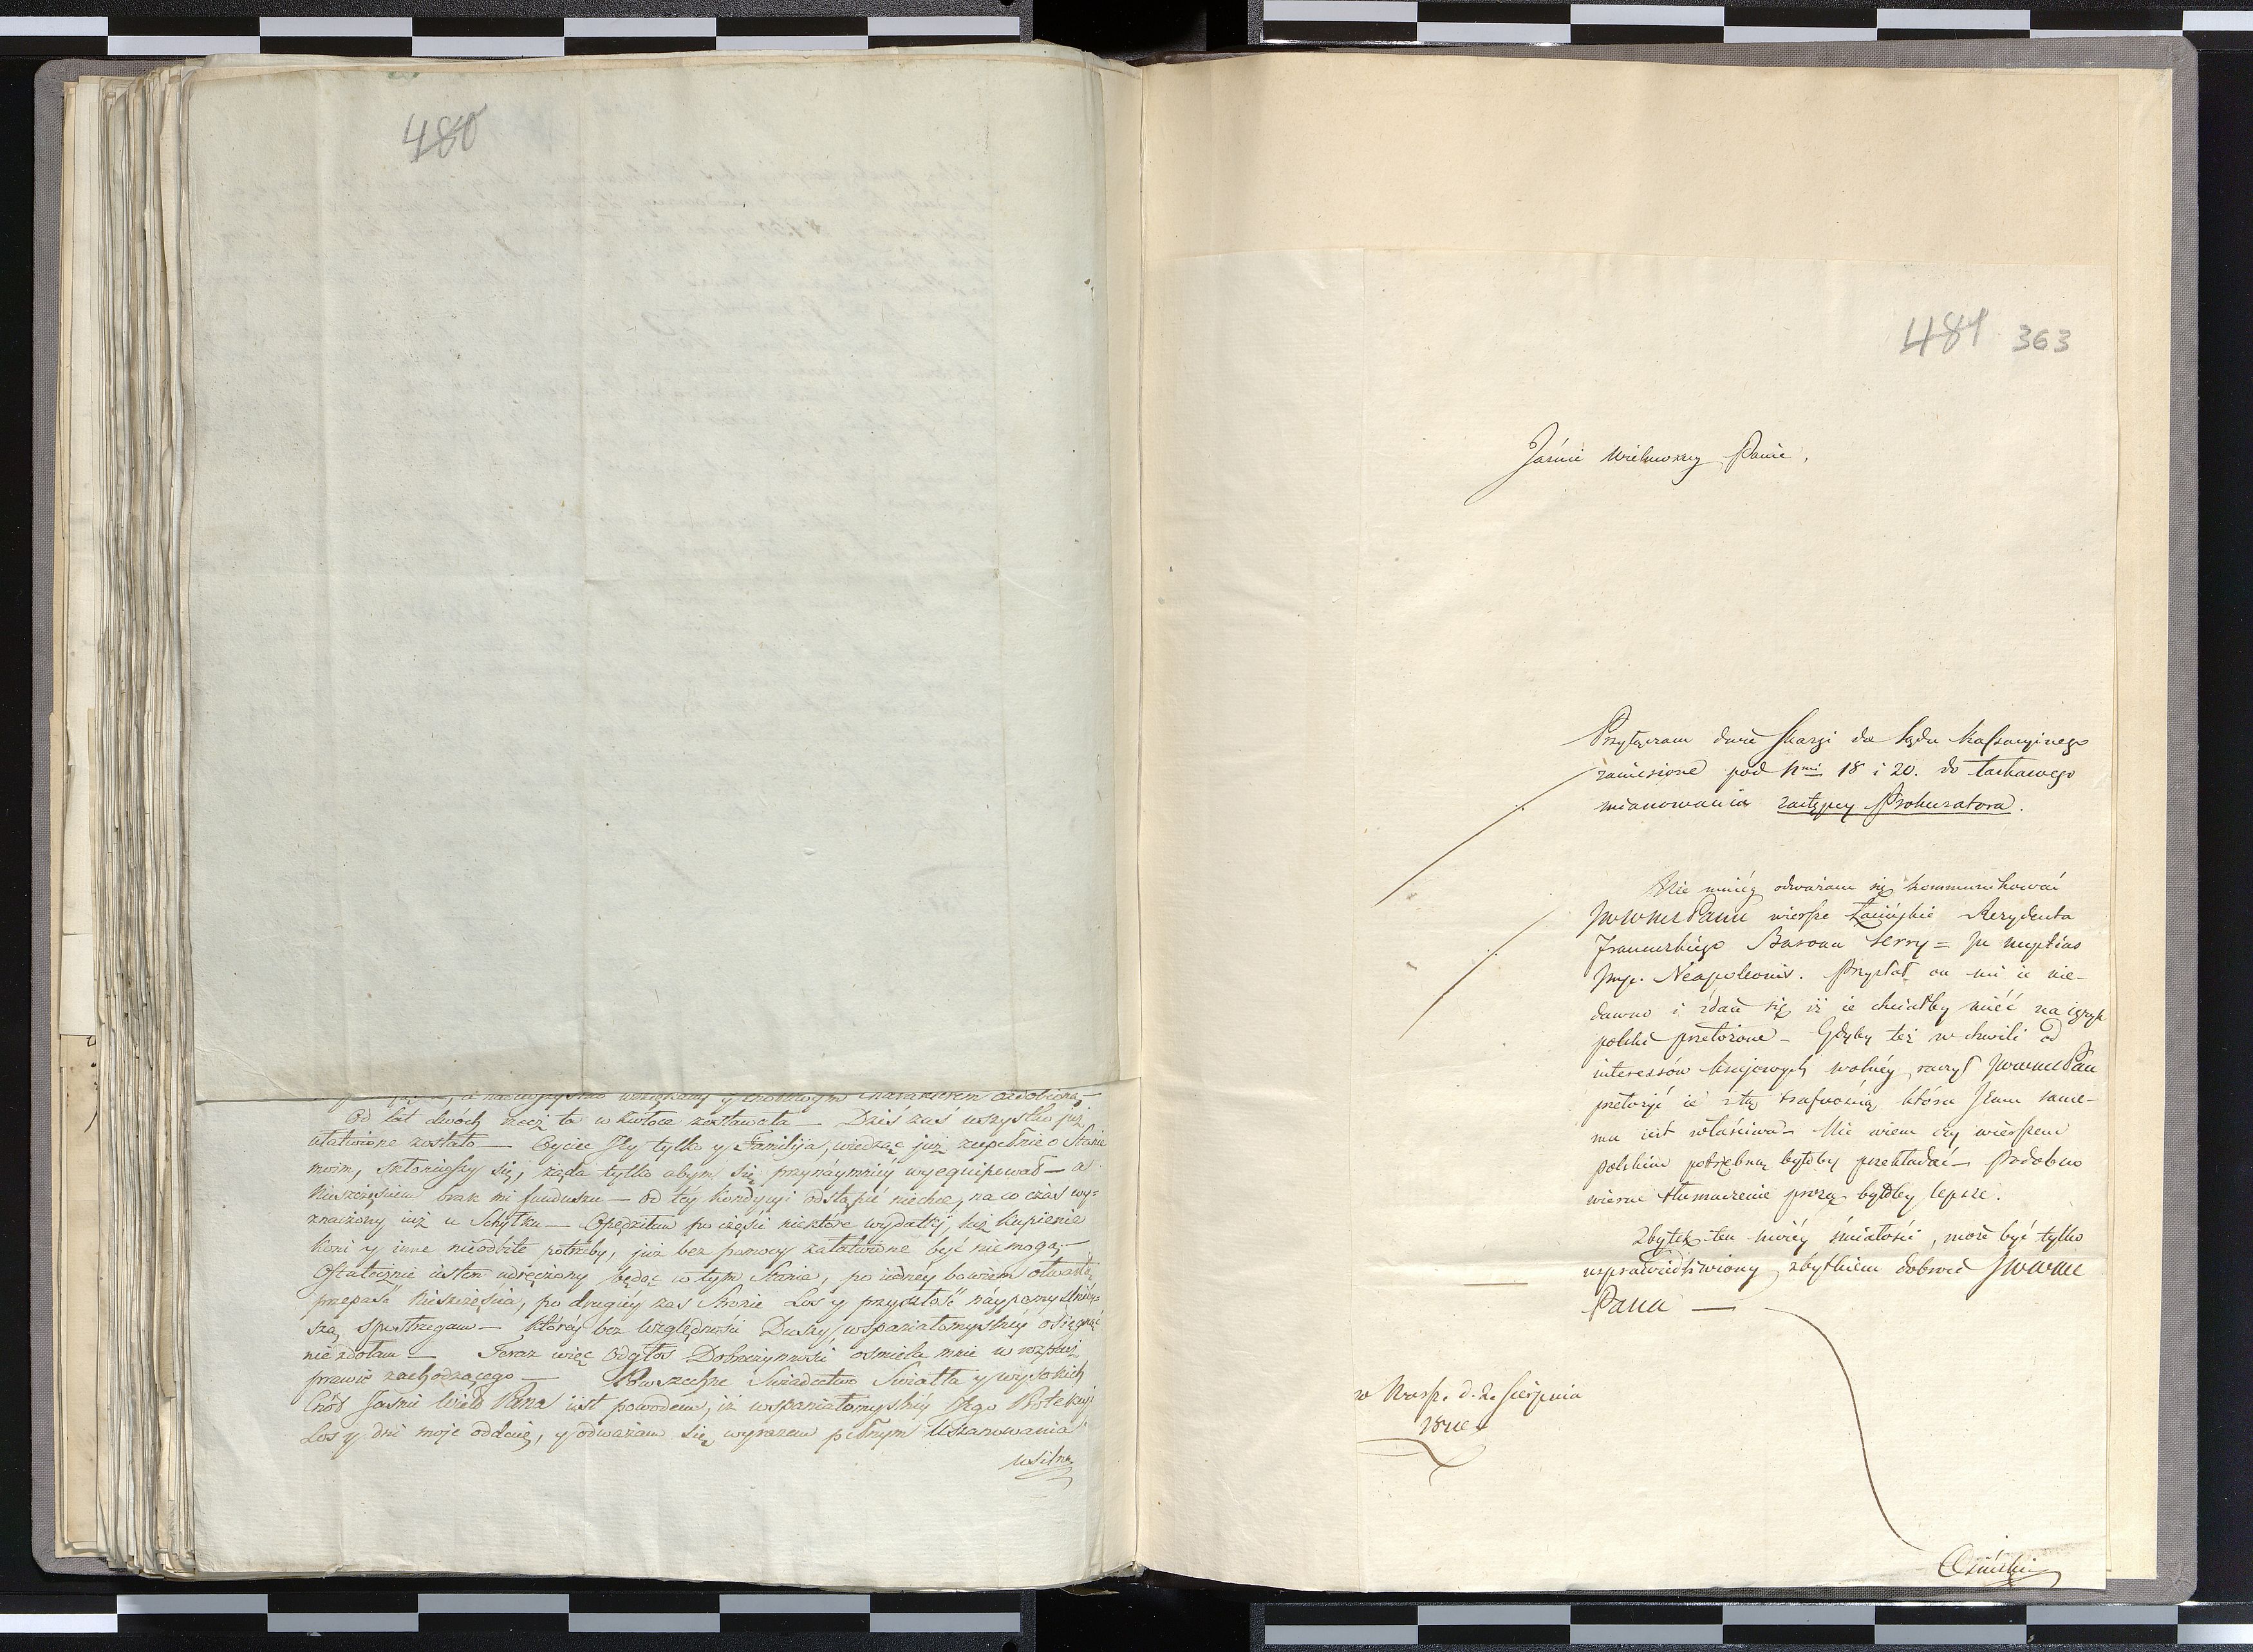 480
Od lat dwóch rzecz ta w kwocie zostawała — Dziś zaś wszystko już
ułatwione zostało — Oyciec Jey tylko y Familija, wiedząc już zupełnie o Stanie
moim, skłoniwszy się, żąda tylko abym się przynaymniéy wyequipował — a
Nieszczęściem brak mi funduszu — od téy kondycyi odstąpić niechcę, na co czas wy=
znaczony już u Schyłku — Opędziłem po części niektóre wydatki, lecz kupienie
koni y inne nieodbite potrzeby, już bez pomocy załatwione być niemogą —
Ostatecznie iestem udręczony będąc w tym Stanie, po iednéy bowiem otwartą
przepaść Nieszczęścia, po drugiéy zaś stronie Los y przyszłość náypomyślniéy=
szą spostrzegam — którey bez Względności Duszy wspaniałomyślnéy osięgnąć
nie zdołam — Teraz więc Odgłos Dobroczynności ośmiela mnie w rozpaczy
prawie zachodzącego — Powszechne Swiadectwo Swiatła y wysokich
Cnót Jaśnie Wielo Pana iest powodem, iż wspaniałomyślnéy Jego Protekcyi
Los y dni moje oddaię, y odważam się wyrazem pełnym Uszanowania
481 363
Jaśnie Wielmożny Panie,
Przyłączam dwie skargi do Sądu Kassacyinego
zaniesione pod Nmi 18 i 20. do łaskawego
mianowania zastępcy Prokuratora.
Nie mniéy odważam się kommunikować
JWWMPanu wiersze Łacińskie Rezydenta
Francuzkiego Barona Serra = In nuptias
Imp. Neapoleonis. Przysłał on mi ie nie-
dawno i zdaie się iż ie chciałby mieć na ięzyk
polski przełożone — Gdyby też w chwili od
interessów kraiowych wolnéy, raczył JWWMPan
przełożyć ie z tą trafnością która Jemu same-
mu iest właściwa — Nie wiem czy wierszem
polskim potrzebną byłoby przekładać — Podobno
wierne tłumaczenie prozą byłoby lepsze.
Zbytek ten moiéy śmiałości, może być tylko
usprawiedliwiony zbytkiem dobroci JWWM
Pana —
w Warsz. d. 2. Sierpnia
1810
Osiński